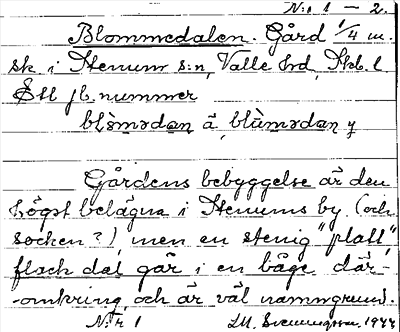 N:r 1 – 2.
Blommedalen. Gård 1/4 m.
sk i Stenum s:n, Valle hrd, Skb. l
Ett jb. nummer
blòmədan å, blùmədan y
Gårdens bebyggelse är den
högst belägna i Stenums by (och
socken?), men en stenig "platt",
flack dal går i en båge där-
-omkring och är väl namngrund.
N:r 1